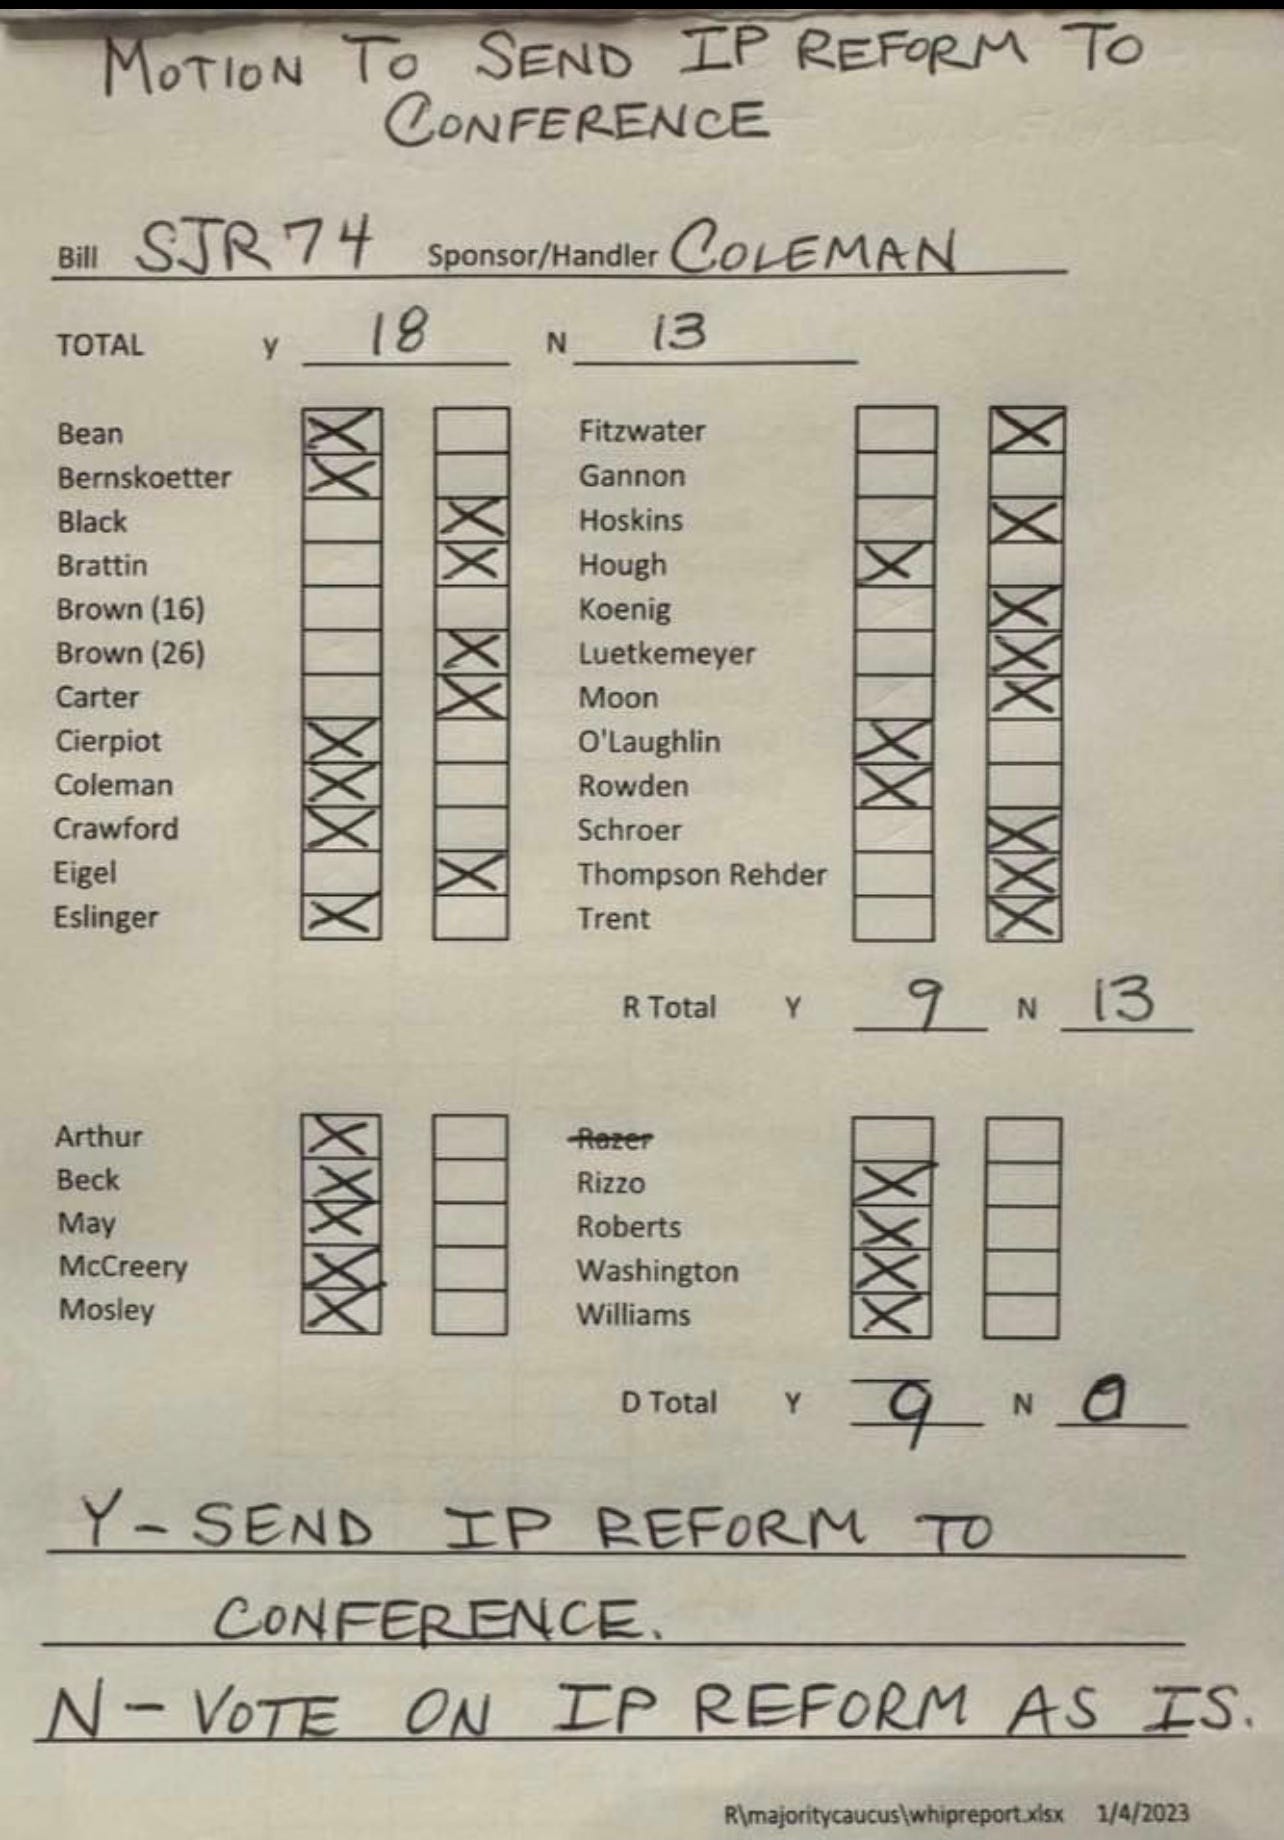 MOTION TO SEND IP REFORM TO
CONFERENCE
Bill SJR 74 Sponsor/Handler COLEMAN
TOTAL Y 18 N 13
Bean X Fitzwater X
Bernskoetter X Gannon
Black X Hoskins X
Brattin X Hough X
Brown (16) Koenig X
Brown (26) X Luetkemeyer X
Carter X Moon X
Cierpiot X O'Laughlin X
Coleman X Rowden X
Crawford X Schroer X
Eigel X Thompson Rehder X
Eslinger X Trent X
R Total Y 9 N 13
Arthur X Razer
Beck X Rizzo X
May X Roberts X
McCreery X Washington X
Mosley X Williams X
D Total Y 9 N 0
Y - SEND IP REFORM TO
CONFERENCE.
N - VOTE ON IP REFORM AS IS.
R\majoritycaucus\whipreport.xlsx 1/4/2023